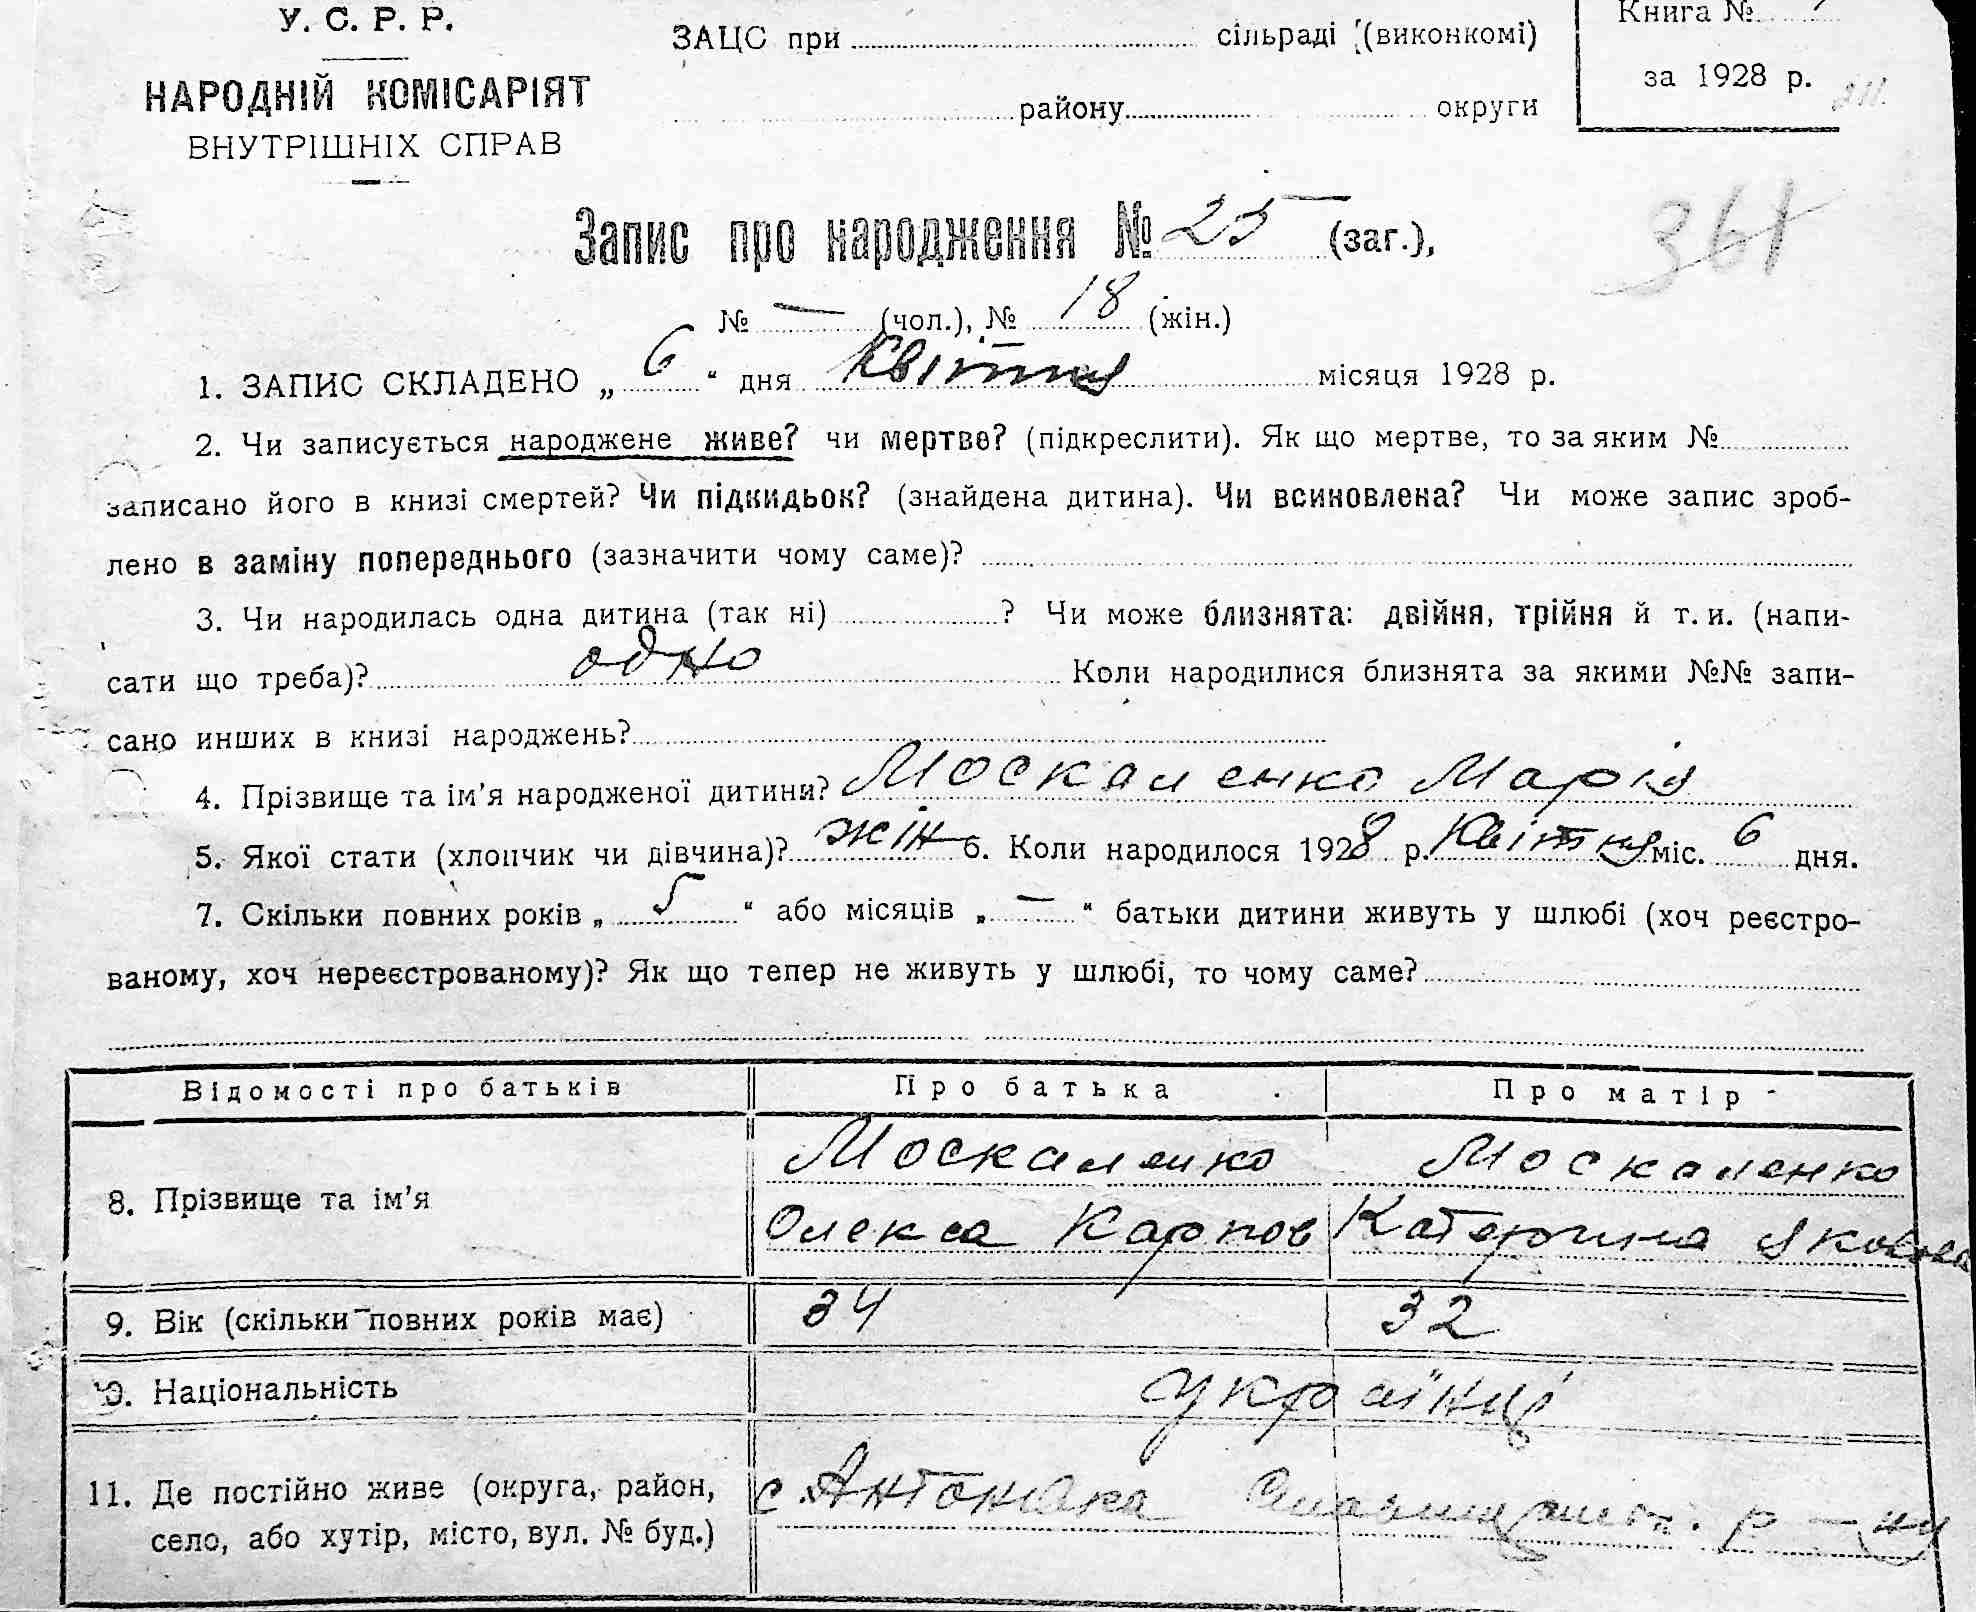 У. С. Р. Р.
НАРОДНІЙ КОМІСАРІЯТ
ВНУТРІШНІХ СПРАВ
ЗАЦС при сільраді (виконкомі)
району округи
Книга №
за 1928 р.
361
Запис про народження № 25 (заг.),
№ — (чол.), № 18 (жін.)
1. ЗАПИС СКЛАДЕНО „ 6 “ дня Квітня місяця 1928 р.
2. Чи записується народжене живе? чи мертве? (підкреслити). Як що мертве, то за яким №
записано його в книзі смертей? Чи підкидьок? (знайдена дитина). Чи всиновлена? Чи може запис зроб-
лено в заміну попереднього (зазначити чому саме)?
3. Чи народилась одна дитина (так ні) ? Чи може близнята: двійня, трійня й т. и. (напи-
сати що треба)? одно Коли народилися близнята за якими №№ запи-
сано инших в книзі народжень?
4. Прізвище та ім’я народженої дитини? Москаленко Марія
5. Якої стати (хлопчик чи дівчина)? жін 6. Коли народилося 1928 р. Квітня міс. 6 дня.
7. Скільки повних років „ 5 “ або місяців „ — “ батьки дитини живуть у шлюбі (хоч реєстро-
ваному, хоч нереєстрованому)? Як що тепер не живуть у шлюбі, то чому саме?
Відомості про батьків Про батька Про матір
8. Прізвище та ім’я Москаленко Олекса Карпов Москаленко Катерина Яковова
9. Вік (скільки повних років має) 34 32
10. Національність українці
11. Де постійно живе (округа, район,
село, або хутір, місто, вул. № буд.) с. Антонівка р-ну